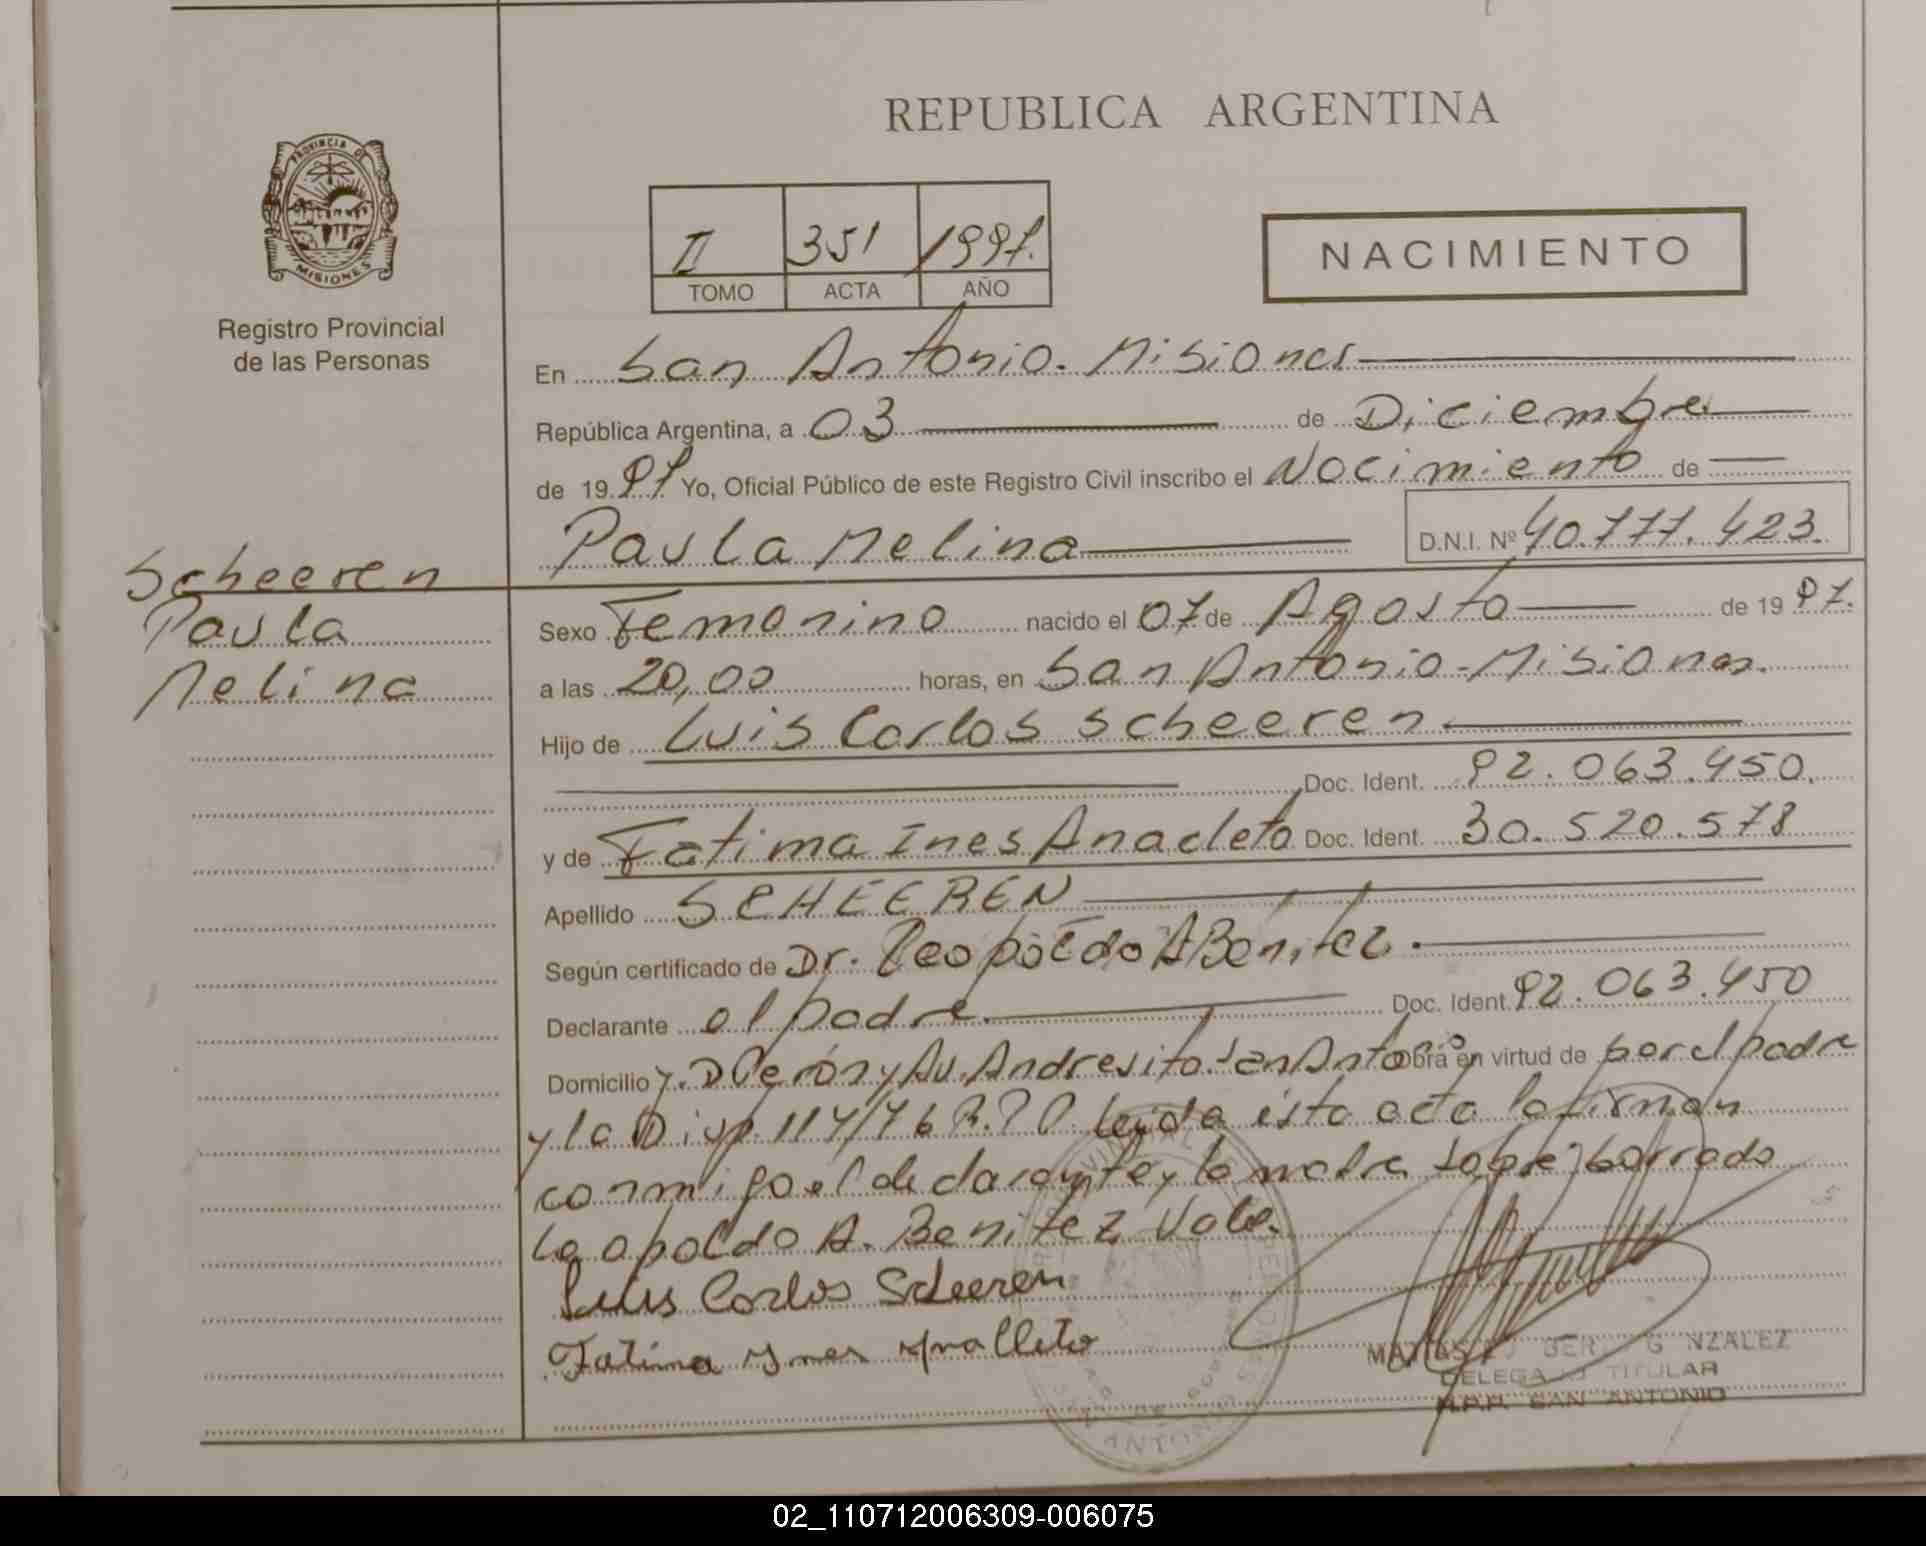 REPUBLICA ARGENTINA
PROVINCIA DE
MISIONES
Registro Provincial
de las Personas
II 351 1997.
TOMO ACTA AÑO
NACIMIENTO
En San Antonio. Misiones
República Argentina, a 03 de Diciembre
de 1997 Yo, Oficial Público de este Registro Civil inscribo el Nacimiento de
Paula Melina D.N.I. Nº 40.777.423.
Scheeren
Paula
Melina
Sexo Femenino nacido el 07 de Agosto de 1997.
a las 20,00 horas, en San Antonio-Misiones.
Hijo de Luis Carlos Scheeren
Doc. Ident. 92.063.450.
y de Fatima Ines Anacleto Doc. Ident. 30.520.578
Apellido SCHEEREN
Según certificado de Dr. Leopoldo A Benitez.
Declarante el padre. Doc. Ident. 92.063.450
Domicilio J. D Perón y Av. Andresito. San Antonio Obra en virtud de por el padre
y la Disp. 114/76 R.P.P. leida ésta acta la firman
conmigo el declarante y la madre sobre borrado
Leopoldo A. Benitez Vale.
Luis Carlos Scheeren
Fatima Ines Analleto
MATIAS BER G NZALEZ
DELEGADO TITULAR
R.P.P. SAN ANTONIO
02_110712006309-006075